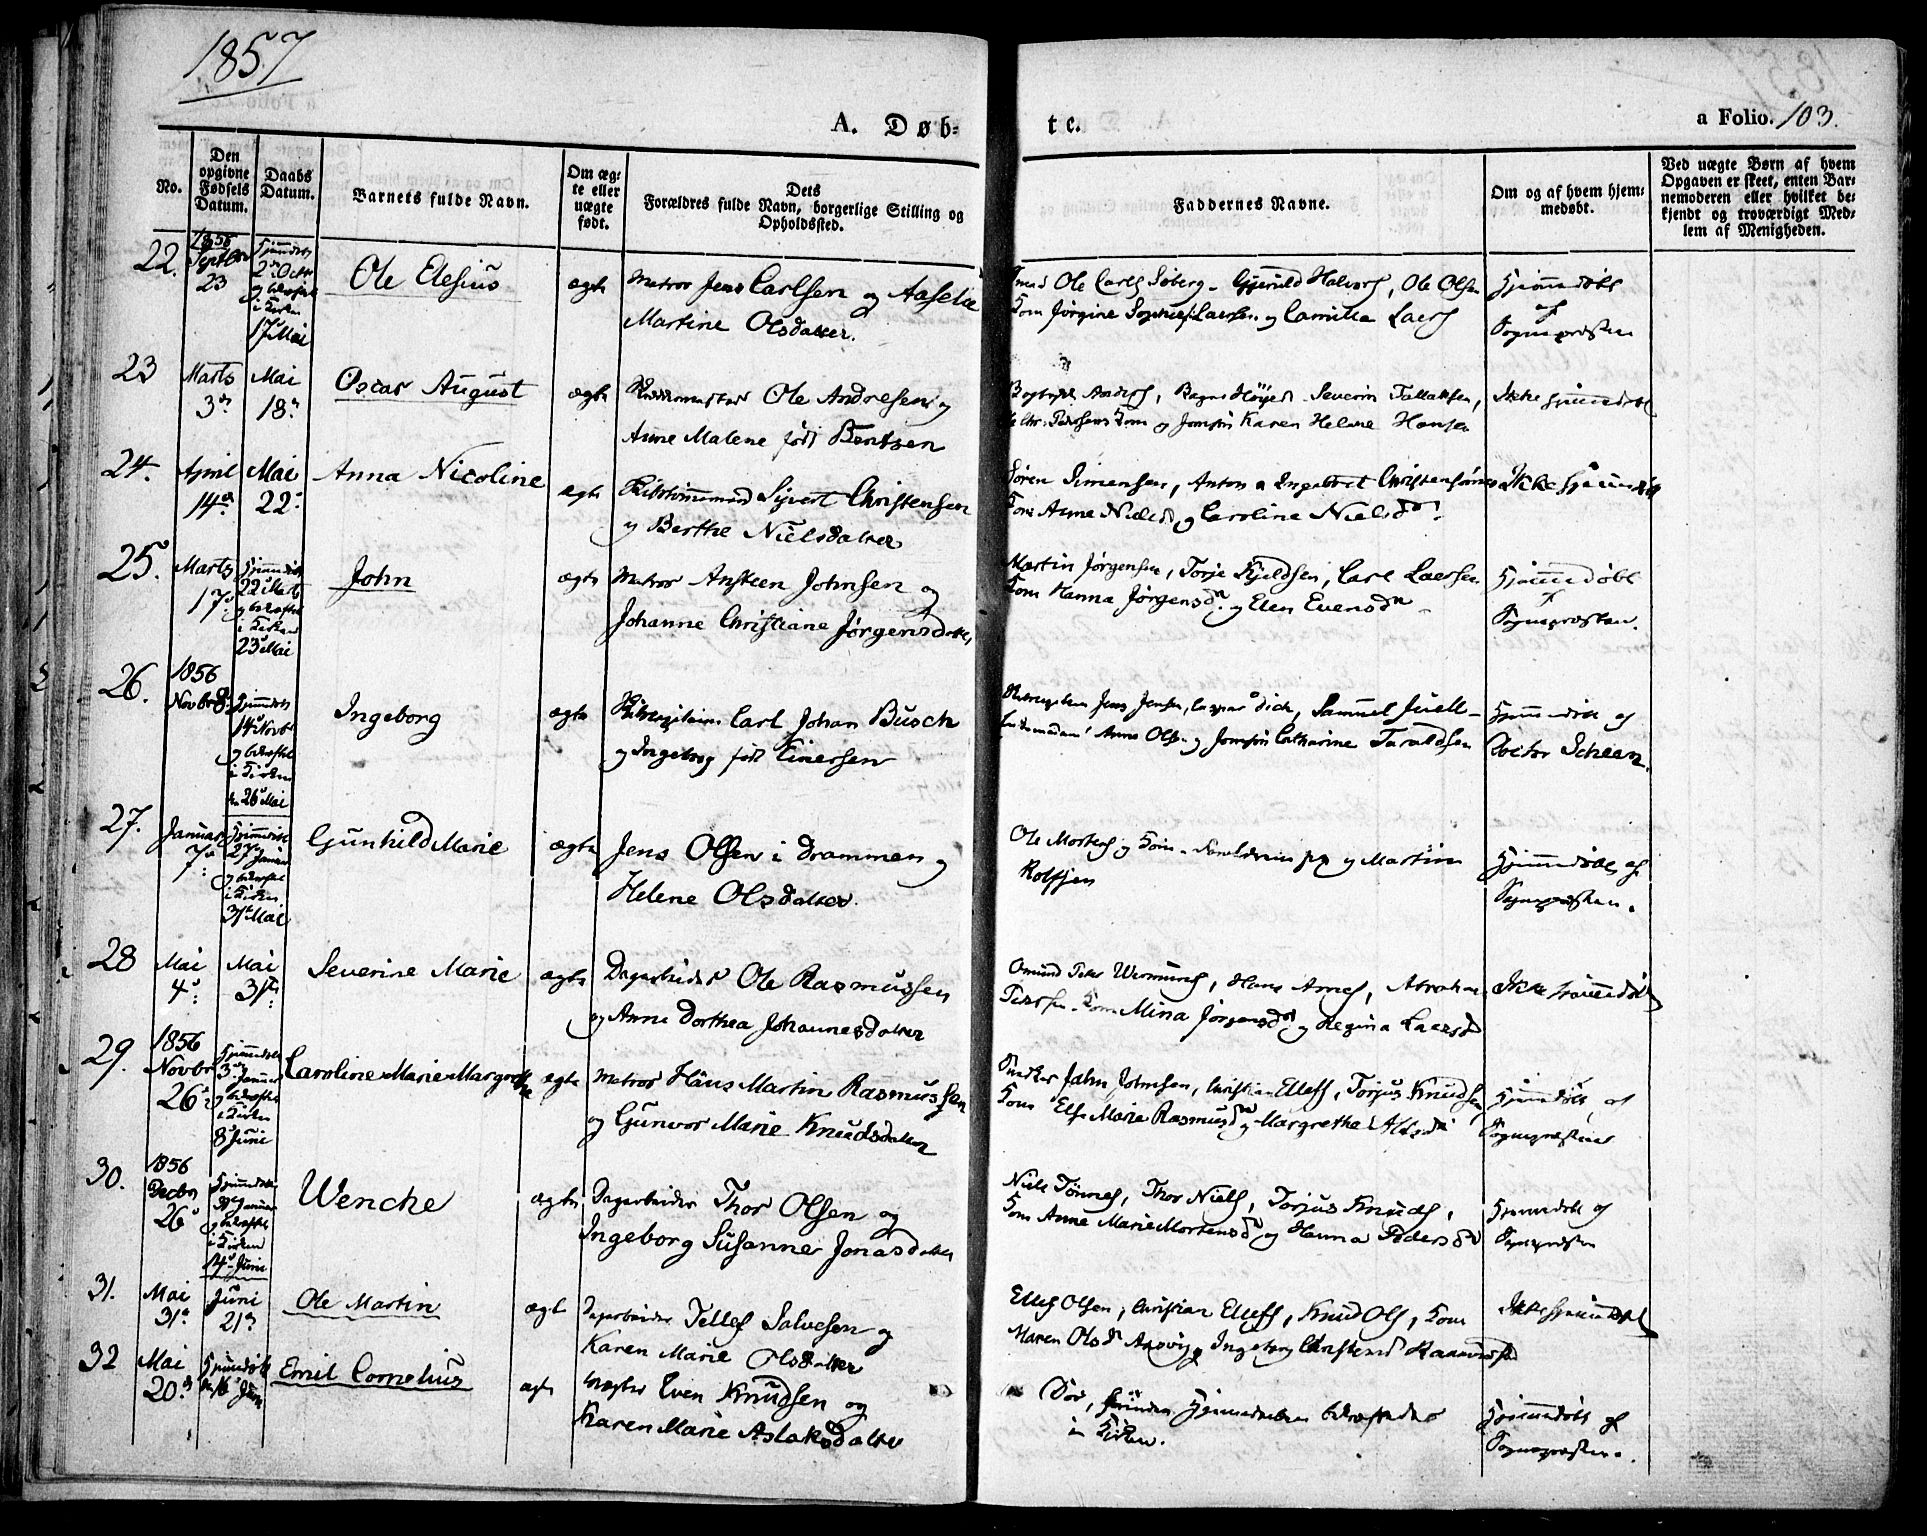 1857
A. Døb-
tc.
a Folio. 103.
No.
Den opgivne Fødsels Datum.
Daabs Datum.
Barnets fulde Navn.
Om æg-
te eller
uægte
født.
Dets
Forældres fulde Navn, borgerlige Stilling og
Opholdssted.
Faddernes Navne.
Om og af hvem hjem-
medøbt.
Ved uægte Børn af hvem
Opgaven er skeet, enten Bar-
nemoderen eller hvilket be-
kjendt og troværdigt Med-
lem af Menigheden.
22. 1856 Septbr 23
Hjemmedøbt 2 Octr og bekræftet i Kirken 17 Mai
Ole Elesius
ægte
Matros Jens Carlsen og Aaselie
Martine Olsdatter.
Ole Carls Soberg - Halvors, Ole Olsen
Kone Jørgine Laersen og Camilla Laers
Hjemmedøbt
af
Sognepræsten
23 Marts 3
Mai 18
Oscar August
ægte
Ole Andresen og
Anne Malene født Bentsen
Severin Tallaksen,
Pedersens Kone og Jomfru Karen Helene Hansen
Ikke hjemmedøbt
24. April 14
Mai 22
Anna Nicoline
ægte
Skibstømmermand Sivert Christensen
og Berthe Nielsdatter
Søren Simensen, Anton Christensen
Kone Anne Nielsd og Caroline Nielsd
Ikke hjemmedøbt
25. Marts 17
Hjemmedøbt 22 Marts og bekræftet i Kirken 23 Mai
John
ægte
Matros Ansteen Johnsen og
Johanne Christiane Jørgensdatter
Martin Jørgensen, Torje Kjeldsen, Carl Laersen
Kone Hanna Jørgensd. og Elen Evensd
Hjemmedøbt
af
Sognepræsten.
26. 1856 Novbr 8
Hjemmedøbt 14 Novbr og bekræftet i Kirken den 26 Mai
Ingeborg
ægte
Skibscapitain Carl Johan Busch
og Ingeborg født Einersen
Jens Jensen, Dick, Samuel Juell
Anne Olsen og Jomfru Cathrine Taraldsen
Hjemmedøbt af
Doctor Scheen.
27. Januar 7
Hjemmedøbt 27 Januar og bekræftet i Kirken 31 Mai
Gunhild Marie
ægte
Jens Olsen i Drammen og
Helene Olsdatter.
Ole Mortens og Kone og Martin
Rolfsen
Hjemmedøbt af
Sognepræsten.
28 Mai 4
Mai 31
Severine Marie
ægte
Dagarbeider Ole Rasmussen
og Anne Dorthea Johannesdatter
Hans Arnes, Abraham
Kone Mina Jørgensd og Regina Laersd
Ikke hjemmedøbt
29. 1856 Novbr 26
Hjemmedøbt 3 Januar og bekræftet i Kirken 8 Juni
Caroline Marie Margrethe
ægte
Matros Hans Martin Rasmussen
og Gunvor Marie Knudsdatter
John Johnsen, Christian Ellefs, Torjus Knudsen
Kone Else Marie Rasmusd og Margrethe
Hjemmedøbt af
Sognepræsten
30. 1856 Decbr 26
Hjemmedøbt Januar og bekræftet i Kirken 14 Juni
Wencke
ægte
Dagarbeider Thor Olsen og
Ingeborg Susanne Jonasdatter
Niels Tønnes, Thor Niels, Torjus Knuds,
Kone Anne Marie Mortensd og Hanna Pedersd
Hjemmedøbt af
Sognepræsten
31. Mai 31
Juni 21
Ole Martin
ægte
Dagarbeider Tellef Salvesen og
Karen Marie Olsdatter
Ellef Olsen, Christian Ellefs, Knud Ols, Kone
Maren Olsd og Ingeborg
Ikke hjemmedøbt
32 Mai 20
Hjemmedøbt Juni
Emil Cornelius
ægte
Even Knudsen og
Karen Marie Aslaksdatter
Død, førinden Hjemmedaaben bekræftedes
i Kirken.
Hjemmedøbt af
Sognepræsten.